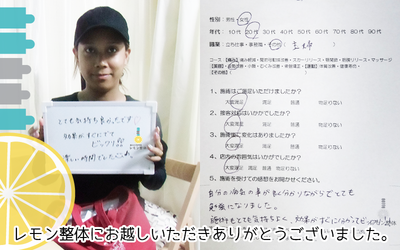 とても気持ち良かったです
効果がすぐにでて
ビックリ!!!
楽しい時間でした
性別：男性・女性
年代：10代 20代 30代 40代 50代 60代 70代 80代 90代
職業：立ち仕事・事務職・その他（主婦
【その他】
1、施術はご満足いただけましたか？
大変満足 満足 普通 物足りない
2、接客対応はいかがでしたか？
大変満足 満足 普通 物足りない
3、施術後に変化はありましたか？
大変満足 満足 普通 物足りない
4、店内の雰囲気はいかがでしたか？
大変満足 満足 普通 物足りない
5、施術を受けての感想をお聞かせください。
自分の病気の事が良く分かりながらとても
勉強になりました。
施術もとても気持ちよく、効果がすぐに分かってビックリ
レモン整体にお越しいただきありがとうございました。